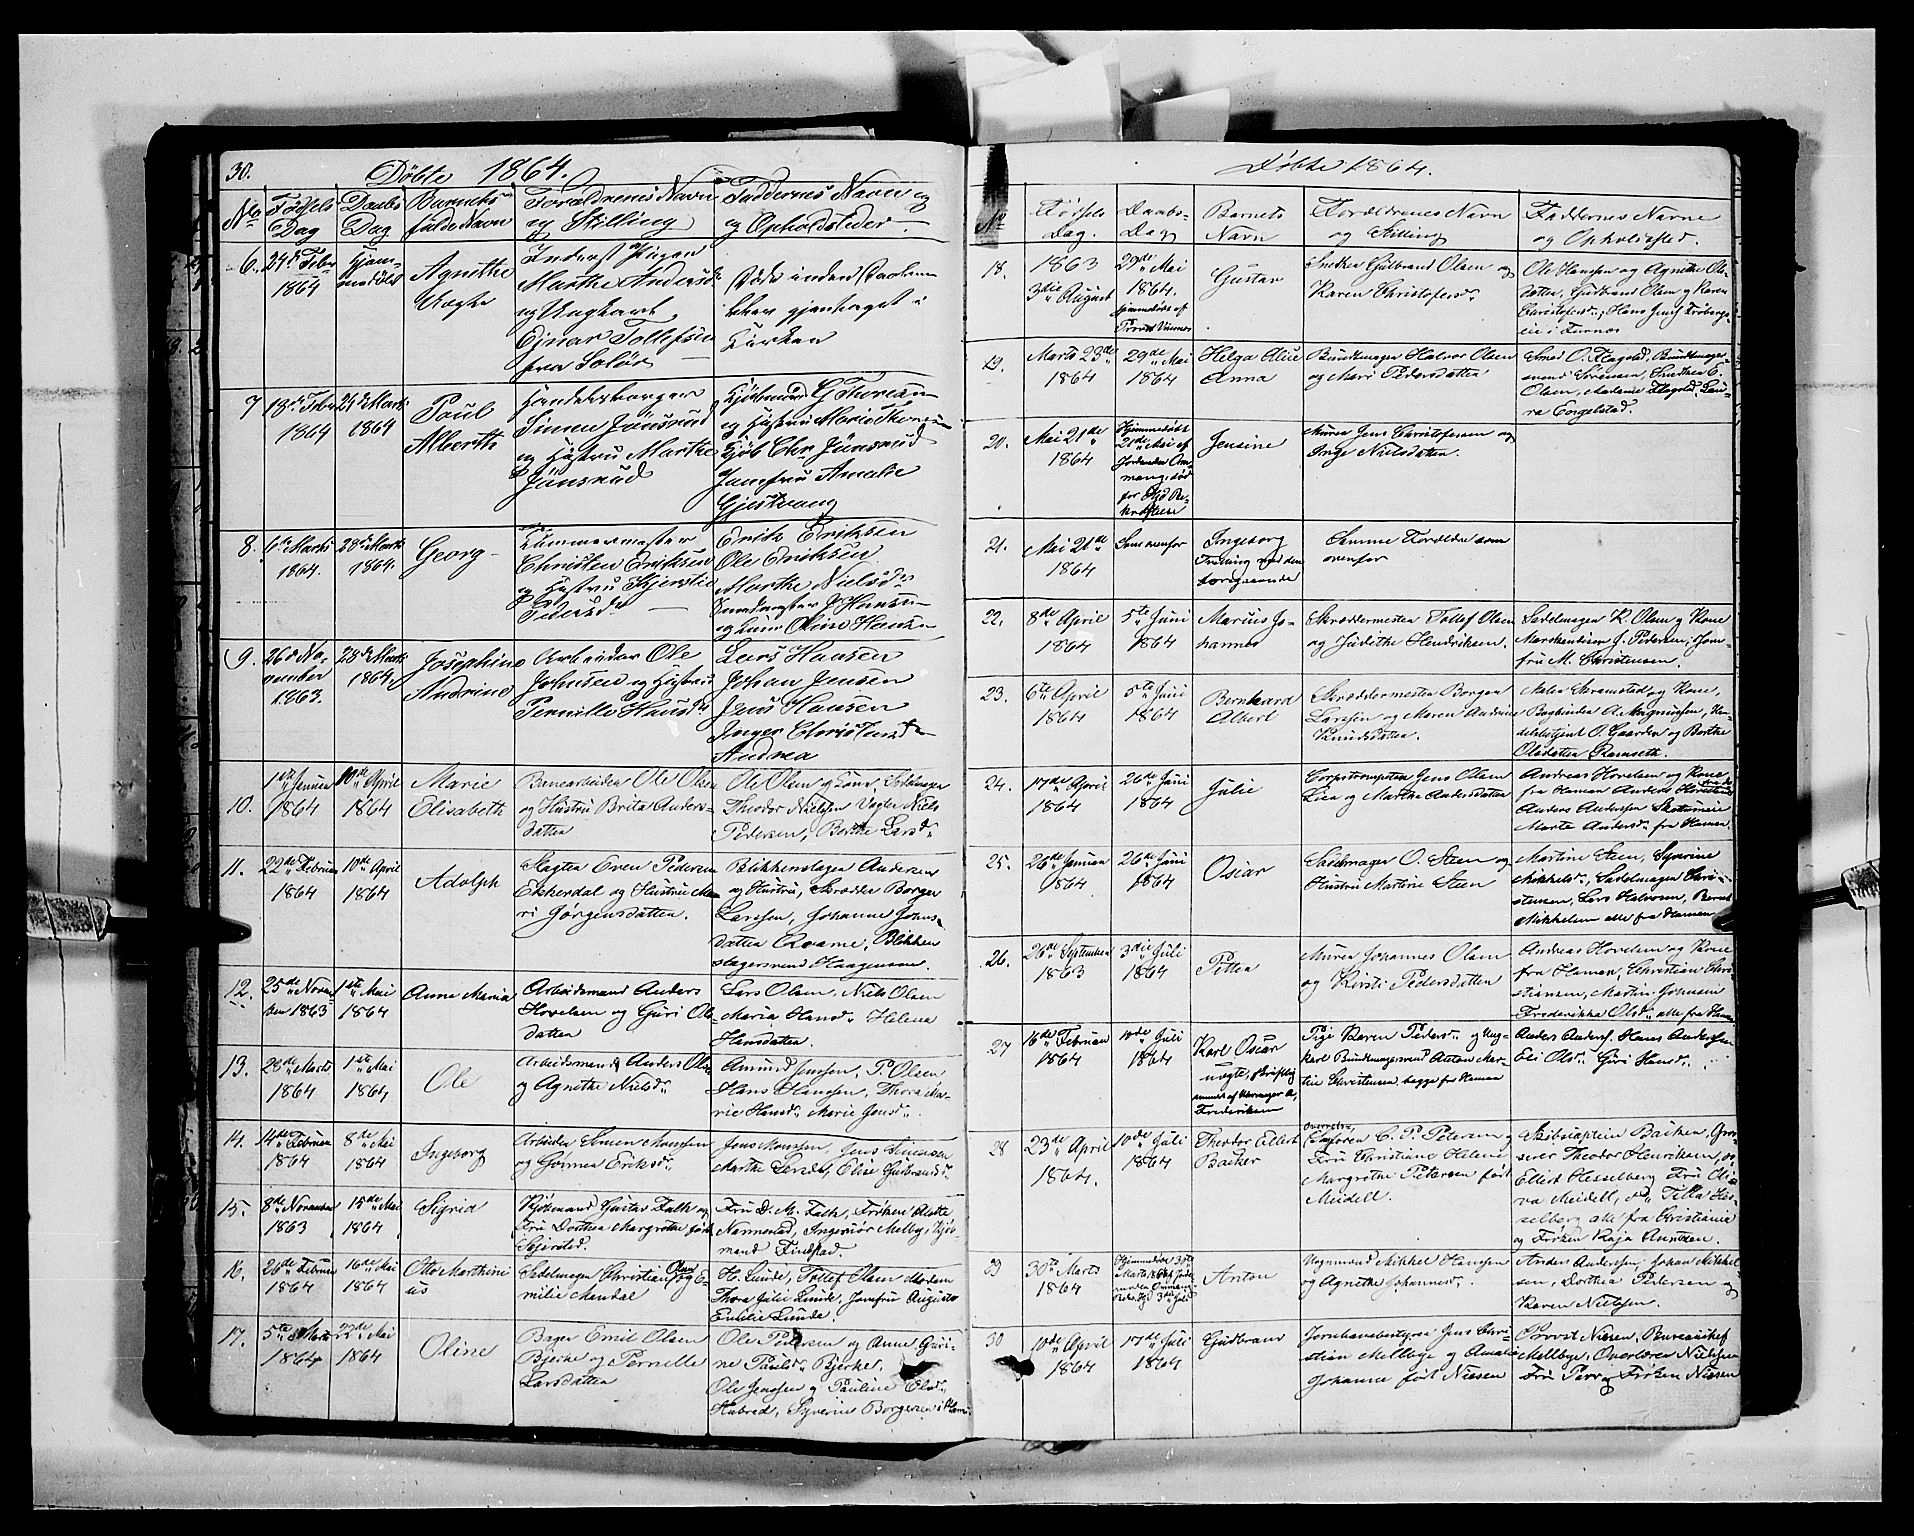 30.
Döbte 1864.
No
Födsels Dag
Daabs Dag
Barnets fulde Navn
Forældrenes Navn og Stilling
Faddernes Navn og Opholdsteder
6.
24de Febr 1864
Hjemmedöbt
Agnethe
Uægte
Pigen
Marthe Andersdr
og Ungkarl
Ejnar Tollefsen
fra Solör
Döde inden Daaben
blev gjentaget i
Kirken
7
18de Febr 1864
24de Marts 1864
Paul
Alberth
Handelsborger
Simen Jönsrud
og Hustru Marthe
Jönsrud
Kjöbmand G Thoresen
og Hustru Marie
Kjöb Chr. Jönsrud
Jomfru Amalie
Gjestvang
8.
6te Marts 1864.
28de Marts 1864.
Georg
Tömmermester
Christen Eriksen
og Hustru Kjerstie
Pedersdr
Eriksen
Ole Eriksen
Marthe Nielsdr
Hansen
og Oline Hansen
9.
26de November 1863.
28de Marts 1864.
Josephine
Andrine
Arbeider Ole
Johnsen og Hustru
Pernille Hansdr
Lars Hansen
Johan Jensen
Jens Hansen
Inger Christensdr
Andrea
10.
1ste Januar 1864
10de April 1864
Marie
Elisabeth
Banearbeider Ole Olsen
og Hustru Brita Andersdatter
Ole Olsen og Kone, Sadelmager
Theodor Nielsen Vogter Niels
Pedersen, Berthe Larsd.
11.
22de Februar 1864
10de April 1864
Adolph
Slagter Even Pedersen
Ekkerdal og Hustru Mari
Jörgensdatter.
Blikkenslager Andersen
og Hustru, Skrædder Borger
Larssen, Johanne Johnsdatter
Qvarne, Blikkenslagersvend
Haagensen.
12.
25de November 1863
1ste Mai 1864
Anne Maria
Arbeidsmand Anders
Hovelsen og Guri Olsdatter
Lars Olsen, Niels Olsen
Maria Hansd. Helena
Hansdatter.
13.
28de Marts 1864
1ste Mai 1864
Ole
Arbeidsmand Anders Olsen
og Agnethe Nielsd.
Amund Jenssen, P. Olsen
Hans Hanssen, Thora Marie
Hansd. Marie Jensd.
14.
14de Februar 1864
8de Mai 1864
Ingeborg
Arbeider Simen Monssen
og Gunnea Eriksd.
Jens Monssen, Jens Simensen
Marthe Larsd, Elise Gulbrandsd.
15.
8de November 1863
15de Mai 1864
Sigrid
Kjöbmand Gustav Falk og
Fru Dorthea Margrethe född
Sejersted.
Fru D. M. Falk, Fröken Agathe
Nannestad, Ingeniör Melby, Kjöbmand
Finstad.
16.
26de Februar 1864
16de Mai 1864
Otto Marthinius
Sadelmager Christian Olsen og Emilie
Mandal
H. Lunde, Tollef Olsen Madam
Thora Julie Lunde, Jomfru Augusta
Emilie Lunde.
17.
5te Marts 1864
22de Mai 1864
Oline
Bager Emil Olsen
Bjerke og Pernelle
Larsdatter
Ole Pedersen og Anne Gurine
Paulsd. Bjerke.
Ole Jenssen og Pauline Elisd.
Hubred, Syverin Borgersen i Hamar
Döbte 1864.
No
Födsels Dag.
Daabs-Dag
Barnets Navn
Forældrenes Navn og Stilling
Faddernes Navne og Opholdssted.
18.
1863 3die August
29de Mai 1864. Hjemmedöbt af Provst Nissen
Gustav
Snekker Gulbrand Olsen og
Karen Christofersd.
Ole Hanssen og Agnethe Olsdatter,
Gulbrand Olsen og Karen
Christofersd., Hans Jensen Frobergseie
i Furnes
19.
Marts 23de 1864
29de Mai 1864
Helga Alice
Anna
Bundtmager Halvor Olsen
og Mari Pedersdatter
Smed O. Flagstad, Bundtmagersvend
Sörensen, Snedker C.
Olsen, Madame Flagstad, Laura
Engelstad.
20.
Mai 21de 1864
Hjemmedöbt 21de Mai af Jordemoder Ommang, död för Stadfæstelse
Jensine
Murer Jens Christofersen og
Inge Nielsdatter.
21.
Mai 21de 1864
Som ovenfor
Ingeborg
Tvilling med den
foregaaende
Samme Forældre som
ovenfor
22.
8de April 1864
5te Juni 1864
Marius Johannes
Skræddermester Tollef Olsen
og Judithe Hendriksen.
Sadelmager K. Olsen og Kone
Marskandiser J. Pedersen, Jomfru
M. Christensen.
23.
6te April 1864
5te Juni 1864
Bernhard
Albert
Skræddermester Borger
Larssen og Maren Andrine
Knudsdatter.
Maler Skramstad og Kone,
Bogbinder A. Magnussen, Handelsbetjent
O. Gaarder og Berthe
Olsdatter Ramseth.
24.
17de April 1864
26de Juni 1864
Julie
Corpstrompeter Jens Olsen
Lien og Marthe Andersdatter
Andreas Hovelsen og Kone
fra Hamar Anders Hovelsen
Anders Anderssen
Marte Andersd. fra Hamar.
25.
26de Januar 1864
26de Juni 1864
Oscar
Sadelmager O. Steen og
Hustru Martine Steen
Martine Steen, Syverine
Mikkelsd., Sadelmager Christensen,
Lars Halvorsen, Bernt
Mikkelsen alle fra Hamar
26.
26de September 1863
3die Juli 1864
Petter
Murer Johannes Olsen
og Kirsti Pedersdatter
Andreas Hovelsen og Kone
fra Hamar, Christian Christiansen,
Martin Johnsen
Frederikka Olsd. alle fra Hamar
27
16de Februar 1864
10de Juli 1864
Karl Oscar
uægte, skriftlig
anmeldt af Garver A.
Frederiksen
Pige Karen Pedersd. og Ungkarl
Bundtmagersvend Anton Martin
Christensen, begge fra Hamar
Anders Anderss. Hans Anderssen
Eli Olsd. Guri Hansd.
28
23de April 1864.
10de Juli 1864
Theodor Ellert
Backer
Overlærer C. P. Petersen og
Fru Christiane Helene
Margrethe Petersen född
Meidell.
Skibscaptein Backer, Grosserer
Theodor Henriksen, og
Ellert Hesselberg Fru Oliva
Meidell, do. Tilla Hesselberg
alle fra Christiania
og Fröken Kaja Arntzen.
29
30te Marts 1864
Hjemmedöbt 30te Marts 1864 af Jordemoder Ommang 3die Juli
Anton
Vognmand Mikkel Hanssen
og Agnethe Johannesd.
Anders Anderssen, Johan Mikkelsen,
Dorthea Pedersen og
Karen Nielssen.
30
10de April 1864
17de Juli 1864
Gudbrand
Jernbanebestyrer Jens Christian
Mellbye og Amalia
Johanne född Nissen
Provst Nissen, Bureauchef
Mellbye, Overlærer Nielssen
Fru Parr og Fröken Nissen